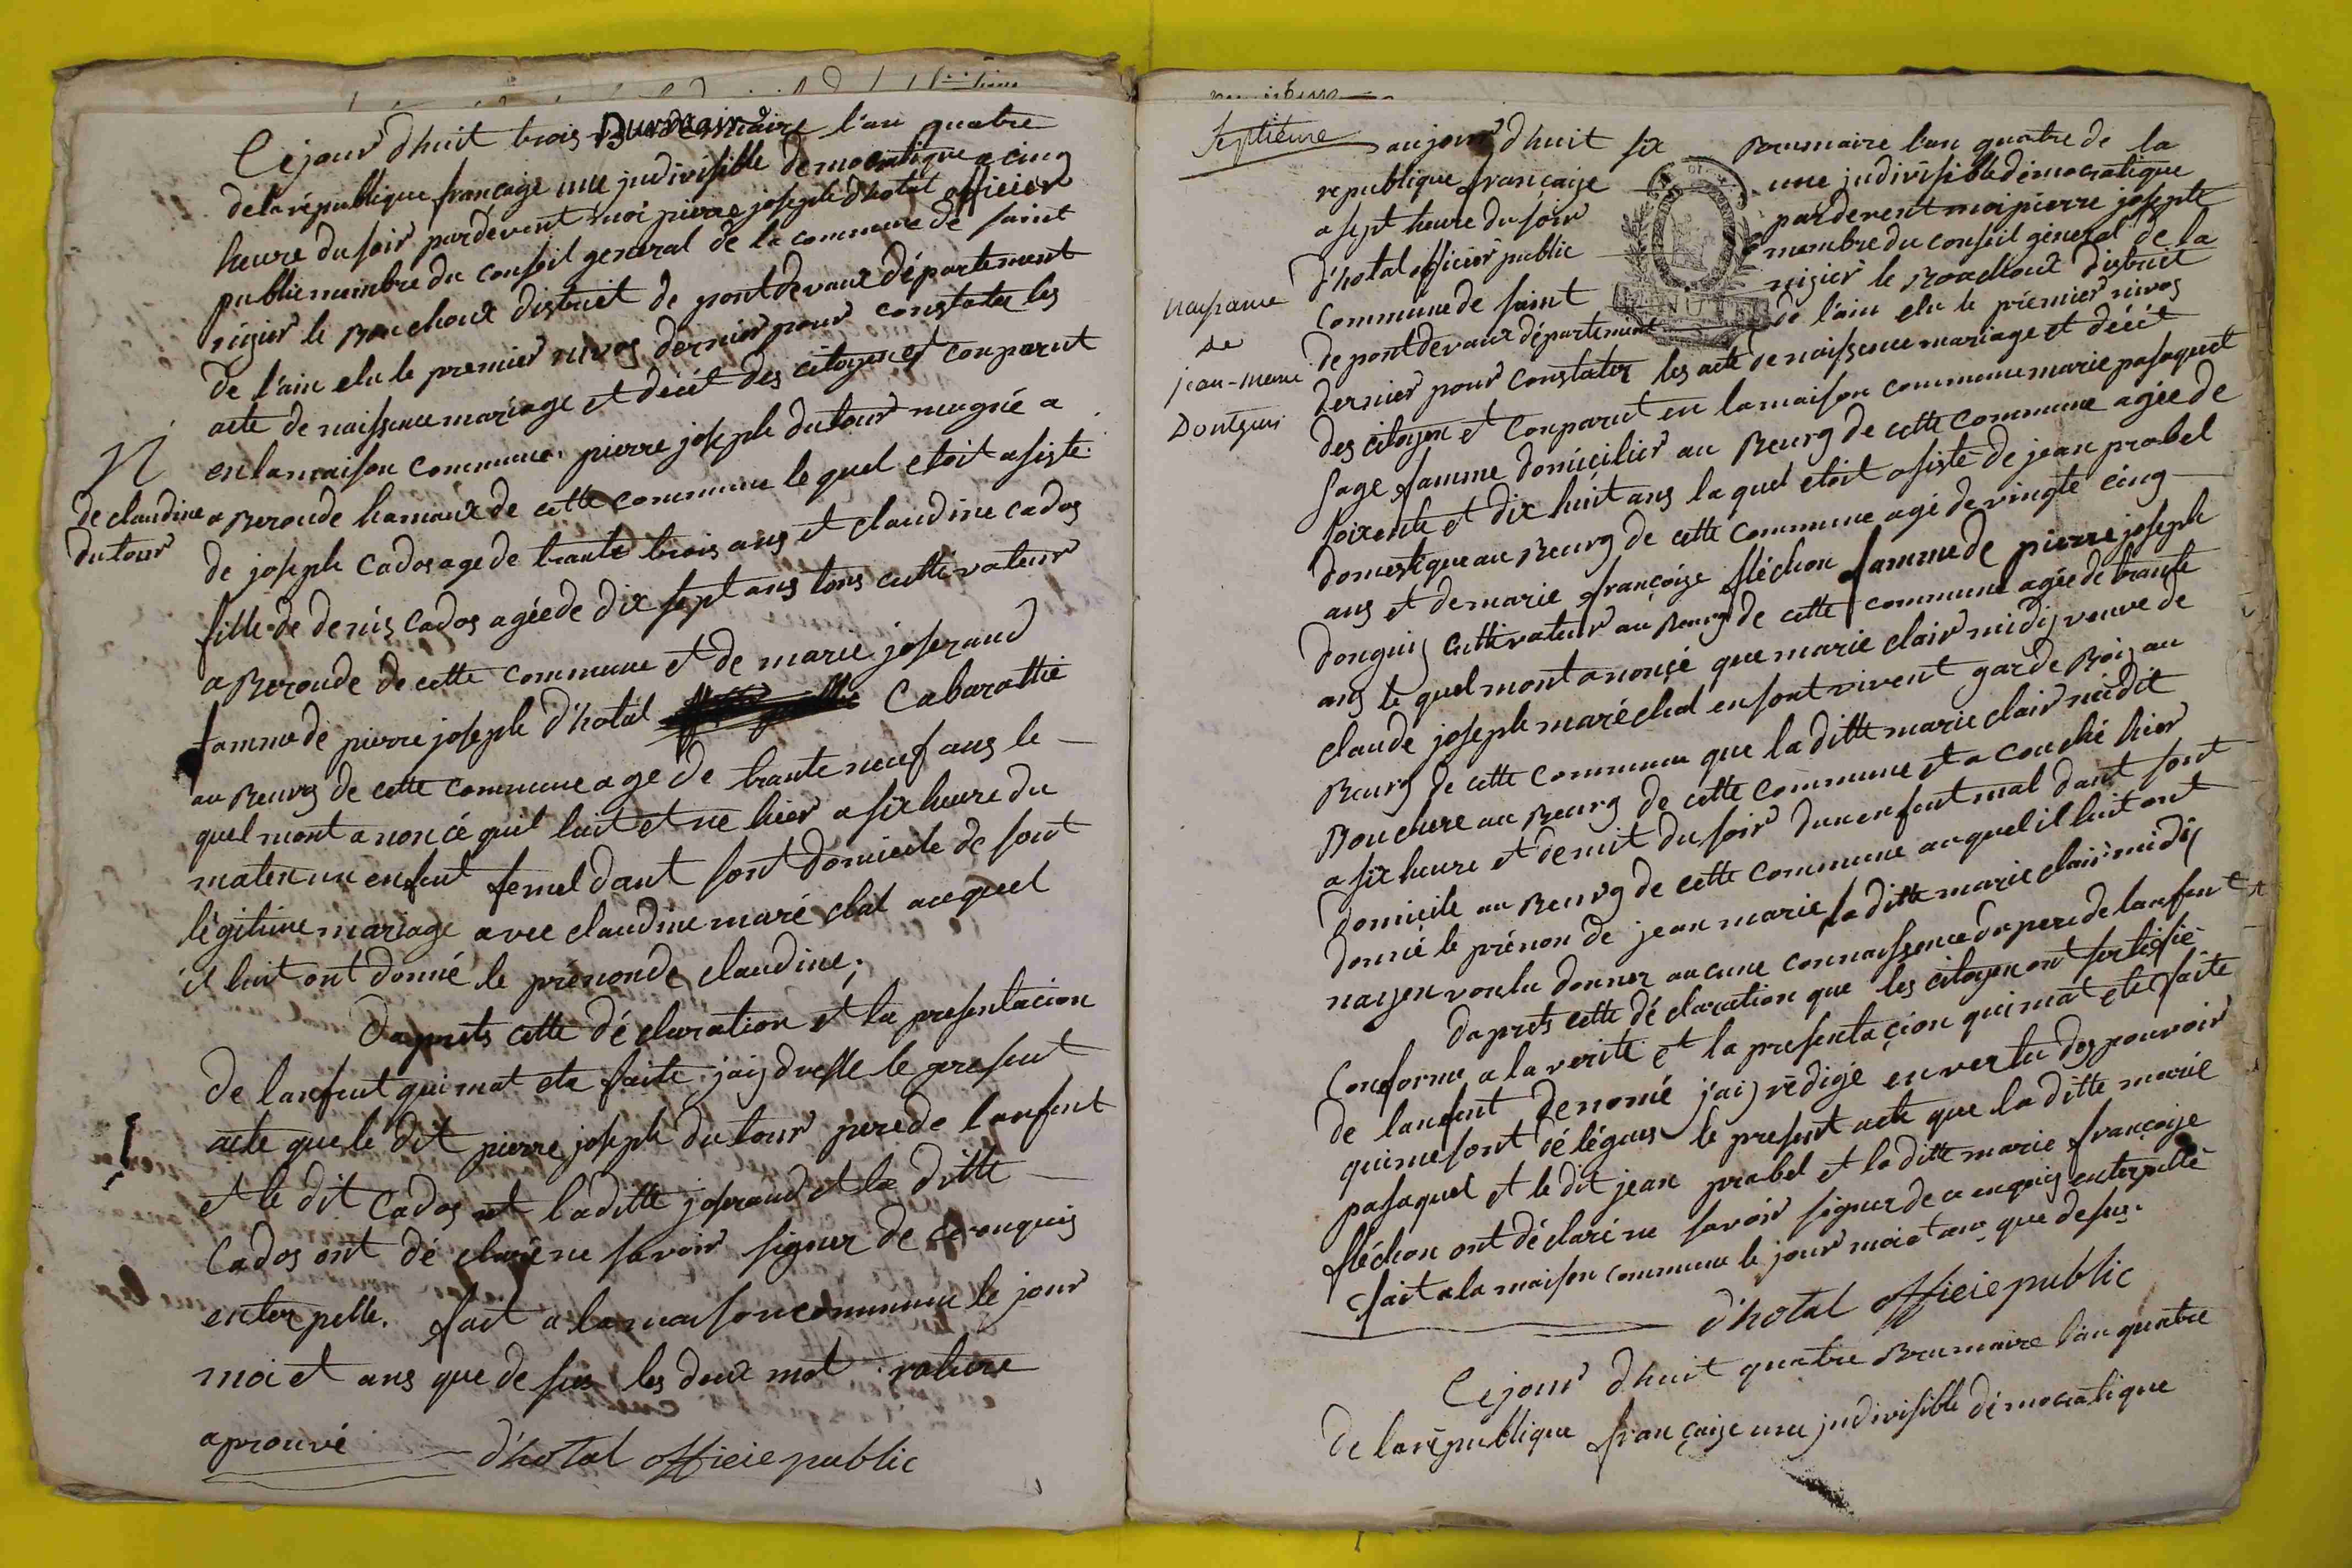 Ce jour d'huit trois Brumaire l'an quatre
de la république françaize une judivisible démocratique a cinq
heure du soir pardevent moi pierre joseph d'hotal officier
public membre du conseil general de la commune de saint
nizier le Bouchoux district de pontdevaux département
de l'ain elu le premier nivos dernier pour constater les
acte de naissence mariage et décét des citoyen et conparut
en la maison commune pierre joseph dutour magnié a
N
de claudine
dutour
a Beronde hamaux de cette commune le quel etoit asisté
de joseph Cados age de trante trois ans et claudine cados
fille de denis Cados agée de dix sept ans tous cultivateur
a Beronde de cette commune et de marie joserand
famme de pierre joseph d'hotal Cabarattié
au Bourg de cette commune age de trante neuf ans le
quel mont anoncé quil luit et ne hier a six heure du
maten un enfent femel dant sont domicile de sont
légitime mariage avec claudine maré chal auquel
il luit ont donné le prénon de claudine;
Daprets cette dé claration et la presentacion
de lanfent qui mat ete faite jaij dresse le present
acte que le dit pierre joseph dutour pere de lanfent
et le dit Cados et laditte joserand et la ditte
Cados ont dé claré ne savoir signer de ce enquis
enterpelle. fait a la maison commune le jour
moi et ans que de sus les deux mot rature
aprouvé d'hotal officie public
Septieme
naisance
de
jean-marie
Donguis
aujour d'huit six Brumaire l'an quatre de la
republique françaize une judivisible démocratique
a sept heure du soir pardevent moi pierre joseph
d'hotal officier public membre du conseil géneral de la
commune de saint nizier le Bouchoux district
de pontdevaux département de l'ain elu le prémier nivos
dernier pour constater les acte de naissence mariage et décét
des citoyen et conparut en la maison commune marie pasaquet
sage famme domicilier au Bourg de cette commune agée de
soixente et dix huit ans la quel etoit asisté de jean prabel
domestique au Bourg de cette commune agé de vingte cinq
ans et de marie françoize fléchon famme de pierre joseph
donguis cultivateur au Bourg de cette commune agée de trante
ans le quel mont anonçé que marie clair midij veuve de
claude joseph maréchal en sont vivent garde Bois au
Bourg de cette commune que la ditte marie clair midit
Bouchere au Bourg de cette commune et a couché hier
a six heure et demit du soir dun enfent mal dant sont
domicile au Bourg de cette commune auquel il luit ont
donné le prénon de jean marie la ditte marie clair midij
naijen voulu donner aucune connaissence du pere de lanfent
daprets cette dé claration que les citoyen ont sertifié
Conforme a la verité et la presentaçion qui mat ete faite
de lanfent denomé j'aij rédigé en vertu des pouvoir
qui me sont délégues le present acte que la ditte marie
pasaquet et le dit jean prabel et la ditte marie françoize
fléchon ont déclaré ne savoir signer de ce enquis enterpellé
fait a la maison commune le jour moi et ans que desus.
d'hotal officie public
Ce jour d'huit quatre Brumaire l'an quatre
de la république françaize une judivisible démocratique